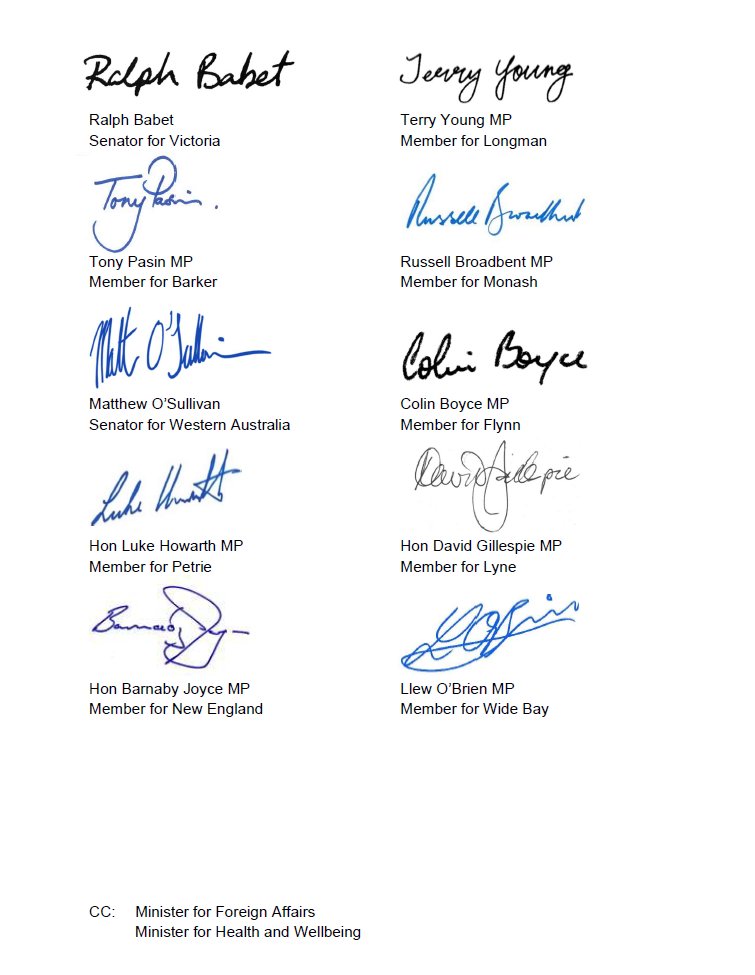 Ralph Babet
Ralph Babet
Senator for Victoria
Terry Young
Terry Young MP
Member for Longman
Tony Pasin.
Tony Pasin MP
Member for Barker
Russell Broadbent
Russell Broadbent MP
Member for Monash
Matt O'Sullivan
Matthew O'Sullivan
Senator for Western Australia
Colin Boyce
Colin Boyce MP
Member for Flynn
Luke Howarth
Hon Luke Howarth MP
Member for Petrie
David Gillespie
Hon David Gillespie MP
Member for Lyne
Hon Barnaby Joyce MP
Member for New England
Llew O'Brien MP
Member for Wide Bay
CC: Minister for Foreign Affairs
Minister for Health and Wellbeing